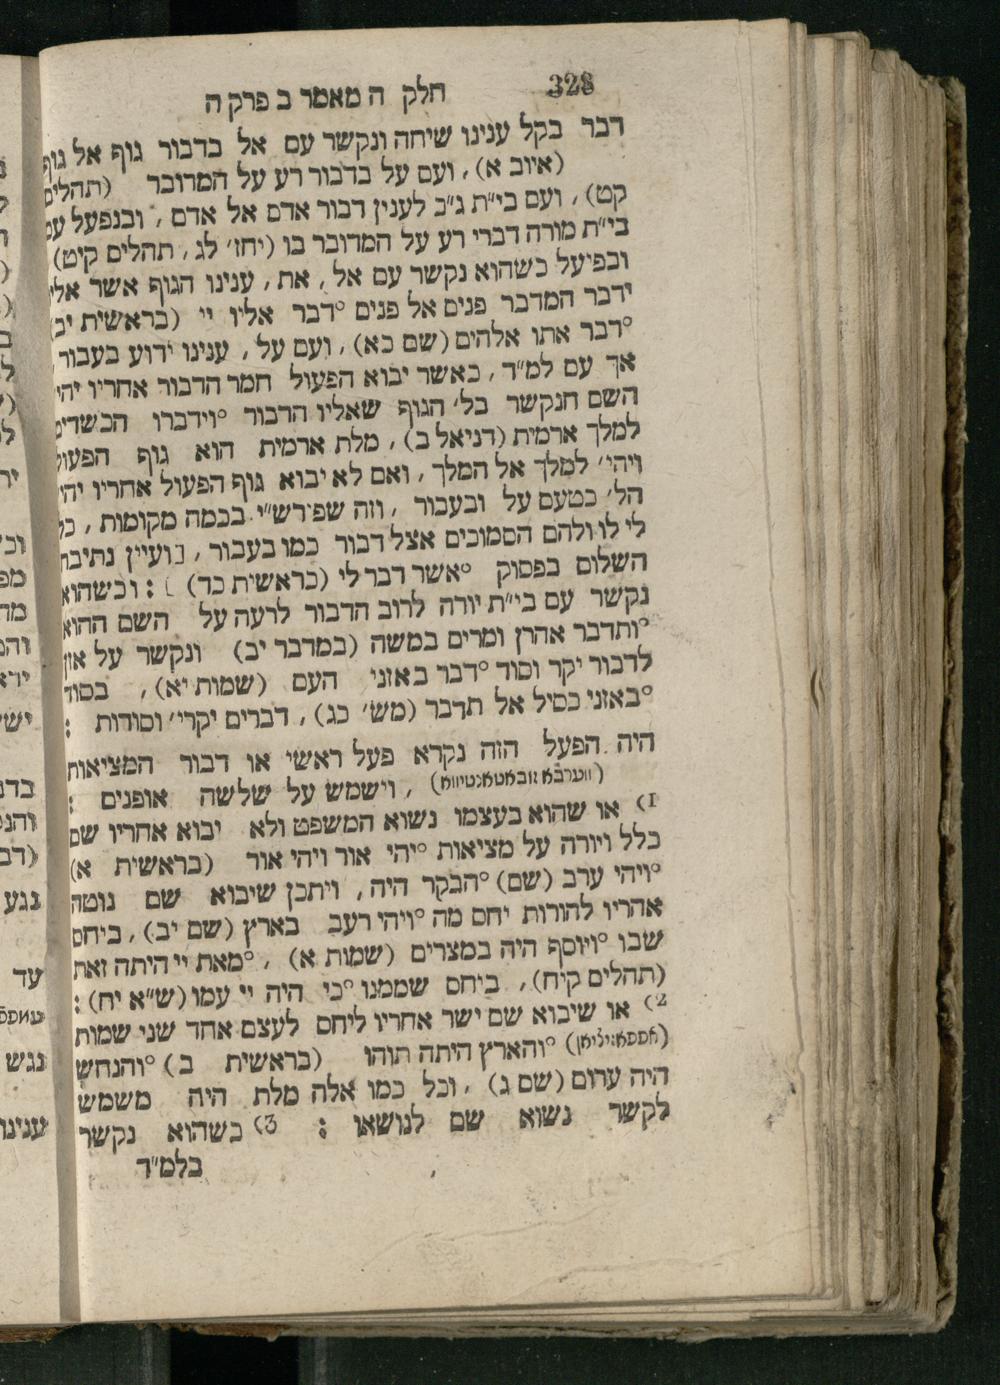 328 חלק ה מאמר ב פרק ה
דבר בקל ענינו שיחה ונקשר עם אל בדבור גוף אל גוף
(איוב א), ועם על בדבור רע על המדובר (תהלים
קט), ועם בי״ת ג״כ לענין דבור אדם אל אדם, ובנפעל עם
בי״ת מורה דברי רע על המדובר בו (יחז׳ לג, תהלים קיט)
ובפיעל כשהוא נקשר עם אל, את, ענינו הגוף אשר אליו
ידבר המדבר פנים אל פנים °דבר אליו יי (בראשית יב)
°דבר אתו אלהים (שם כא), ועם על, ענינו ידוע בעבור,
אך עם למ״ד, כאשר יבוא הפעול חמר הדבור אחריו יהי׳
השם הנקשר בל׳ הגוף שאליו הדבור °וידברו הכשדים
למלך ארמית (דניאל ב), מלת ארמית הוא גוף הפעול
ויהי׳ למלך אל המלך, ואם לא יבוא גוף הפעול אחריו יהי׳
הל׳ כטעם על ובעבור, וזה שפירש״י בכמה מקומות, כל
לי לו ולהם הסמוכים אצל דבור כמו בעבור, [ועיין נתיבת
השלום בפסוק °אשר דבר לי (בראשית כד)]: וכשהוא
נקשר עם בי״ת יורה לרוב הדבור לרעה על השם ההוא
°ותדבר אהרן ומרים במשה (במדבר יב) ונקשר על אזן
לדבור יקר וסוד °דבר באזני העם (שמות יא), בסוד
°באזני כסיל אל תדבר (מש׳ כג), דברים יקרי׳ וסודות:
היה הפעל הזה נקרא פעל ראשי או דבור המציאות
(ווערבא זובאטאנטיווא), וישמש על שלשה אופנים:
1) או שהוא בעצמו נשוא המשפט ולא יבוא אחריו שם
כלל ויורה על מציאות °יהי אור ויהי אור (בראשית א)
°ויהי ערב (שם) °הבקר היה, ויתכן שיבוא שם נוטה
אחריו להורות יחס מה °ויהי רעב בארץ (שם יב), ביחס
שבו °ויוסף היה במצרים (שמות א), °מאת יי היתה זאת
(תהלים קיח), ביחס שממנו °כי היה יי עמו (ש״א יח):
2) או שיבוא שם ישר אחריו ליחס לעצם אחד שני שמות
°והארץ היתה תוהו (בראשית ב) °והנחש
היה ערום (שם ג), וכל כמו אלה מלת היה משמש
לקשר נשוא שם לנושאו: 3) כשהוא נקשר
בלמ״ד